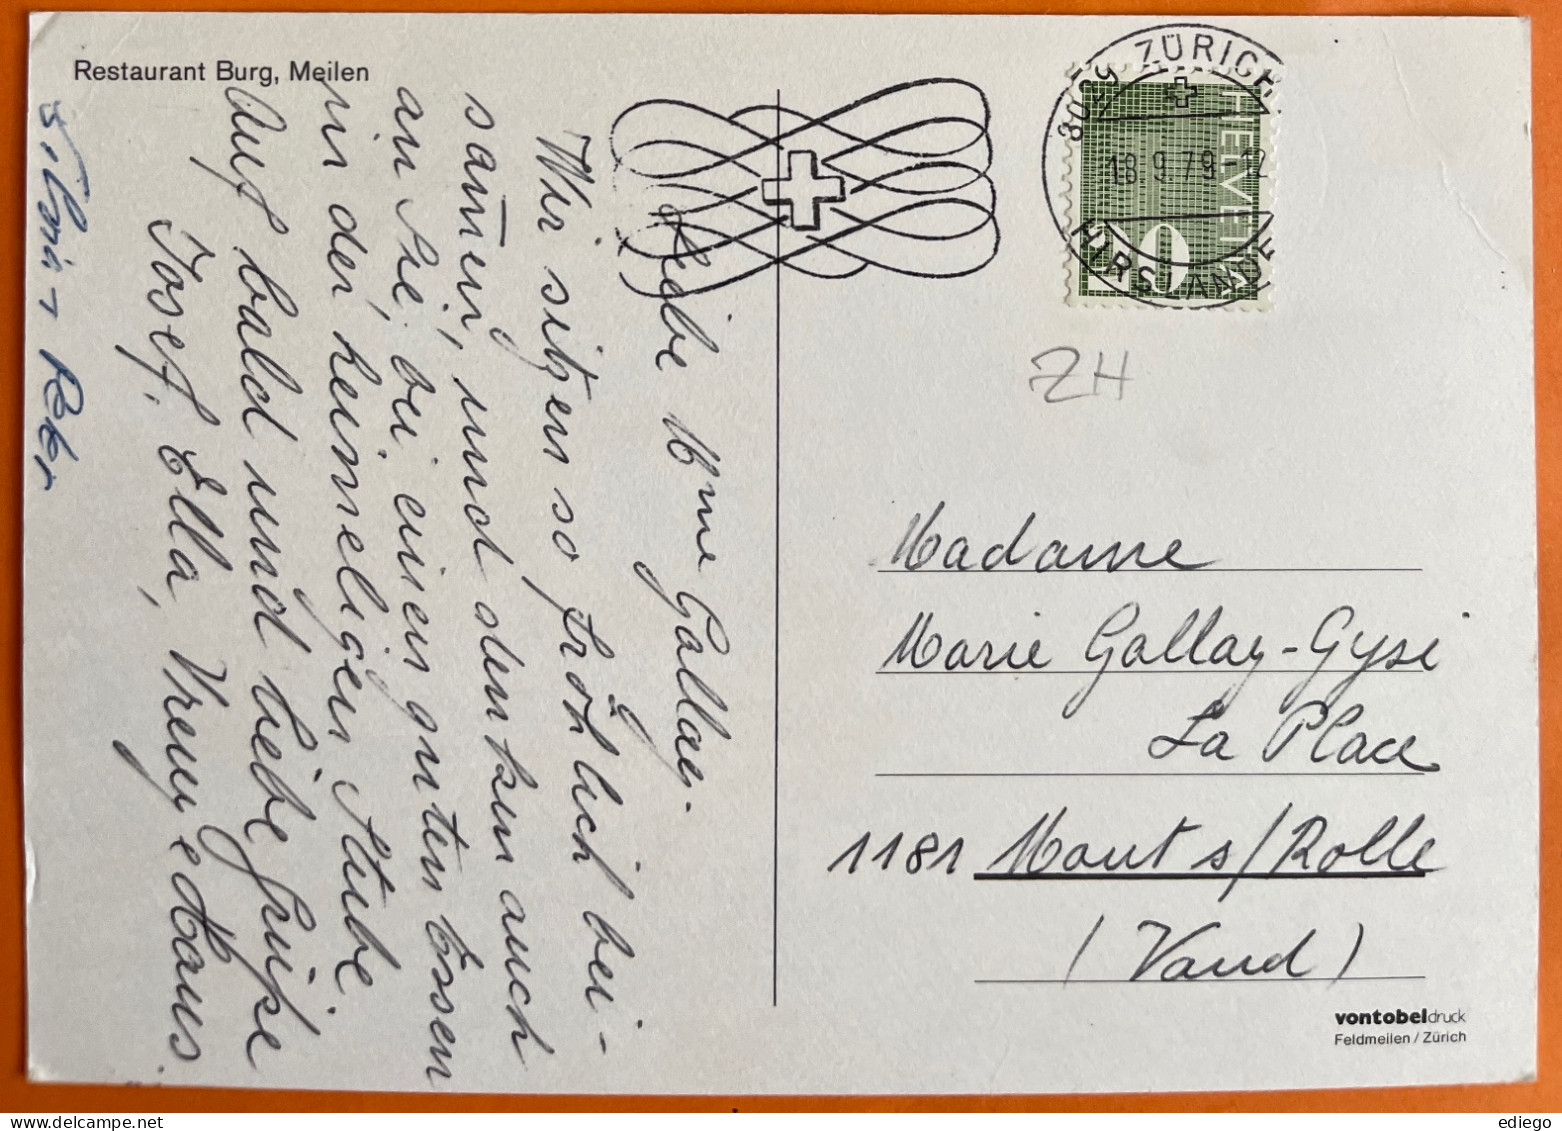 Restaurant Burg, Meilen
Liebe Mme Gallay.
Wir sitzen so fröhlich bei-
samen, und denken auch
an Sie, bei einem guten Essen
in der heimeligen Stube
Auf bald und liebe Grüße
Josef, Ella, Vreny + Hans.
+ Peter
8029 ZÜRICH
18.9.79-12
HIRSLANDEN
HELVETIA
10
ZH
Madame
Marie Gallay-Gysi
La Place
1181 Mont s/Rolle
(Vaud)
vontobeldruck
Feldmeilen / Zürich
ediego